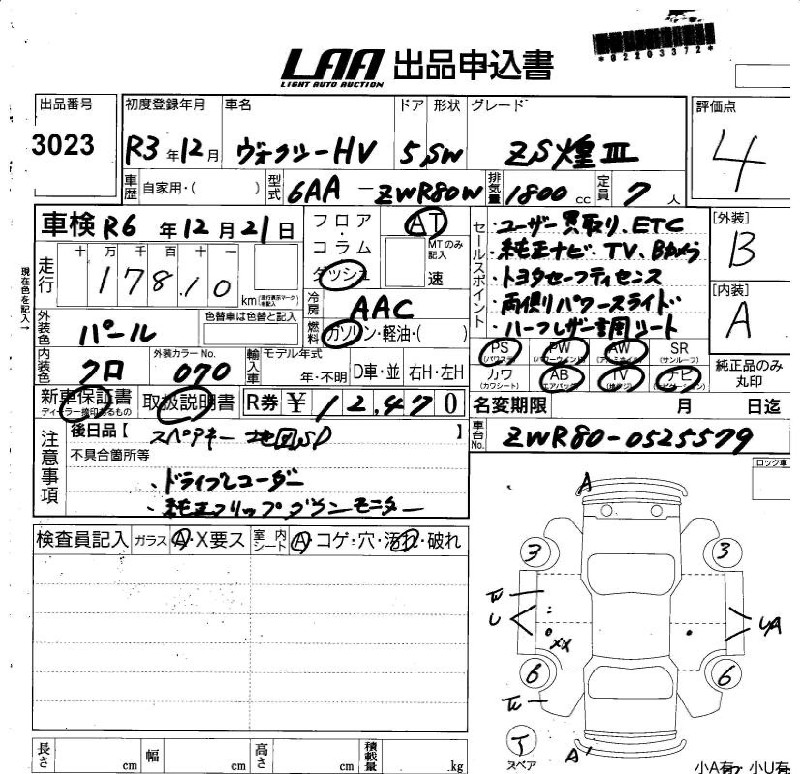 LAA 出品申込書
LIGHT AUTO AUCTION
*02203372*
出品番号 初度登録年月 車名 ドア 形状 グレード 評価点
3023 R3年12月 ヴォクシーHV 5 SW ZS煌III 4
車歴 自家用・( ) 型式 6AA-ZWR80W 排気量 1800cc 定員 7人
車検 R6年12月21日
フロア・コラム ダッシュ
AT
MTのみ記入 速
セールスポイント
・ユーザー買取り、ETC
・純正ナビ・TV、Bカメラ
・トヨタセーフティセンス
・両側パワースライド
・ハーフレザー専用シート
[外装] B
[内装] A
現在色を記入→
走行 十 万 千 百 十 一
178,10 km (走行表示マークを記入)
冷房 AAC
燃料 ガソリン・軽油・( )
外装色 パール 色替車は色替と記入
内装色 クロ 外装カラーNo. 070
輸入車 モデル年式 年・不明 D車・並 右H・左H
PS (パワステ) PW (パワーウィンド) AW (アルミホイル) SR (サンルーフ)
カワ (カワシート) AB (エアバッグ) TV ナビ (ナビゲーション)
純正品のみ丸印
新車保証書 ディーラー捺印あるもの 取扱説明書 R券 ¥12,470
名変期限 月 日迄
注意事項
後日品【 スペアキー 地図SD 】
車台No. ZWR80-0525579
不具合箇所等
・ドライブレコーダー
・純正フリップダウンモニター
ロック車
検査員記入 ガラス A・X要ス 室内シート A・コゲ・穴・汚れ・破れ
A
3 3
W
U
XX
UA
6 6
W
T
スペア
A'
長さ cm 幅 cm 高さ cm 積載量 .kg
小A有 小U有